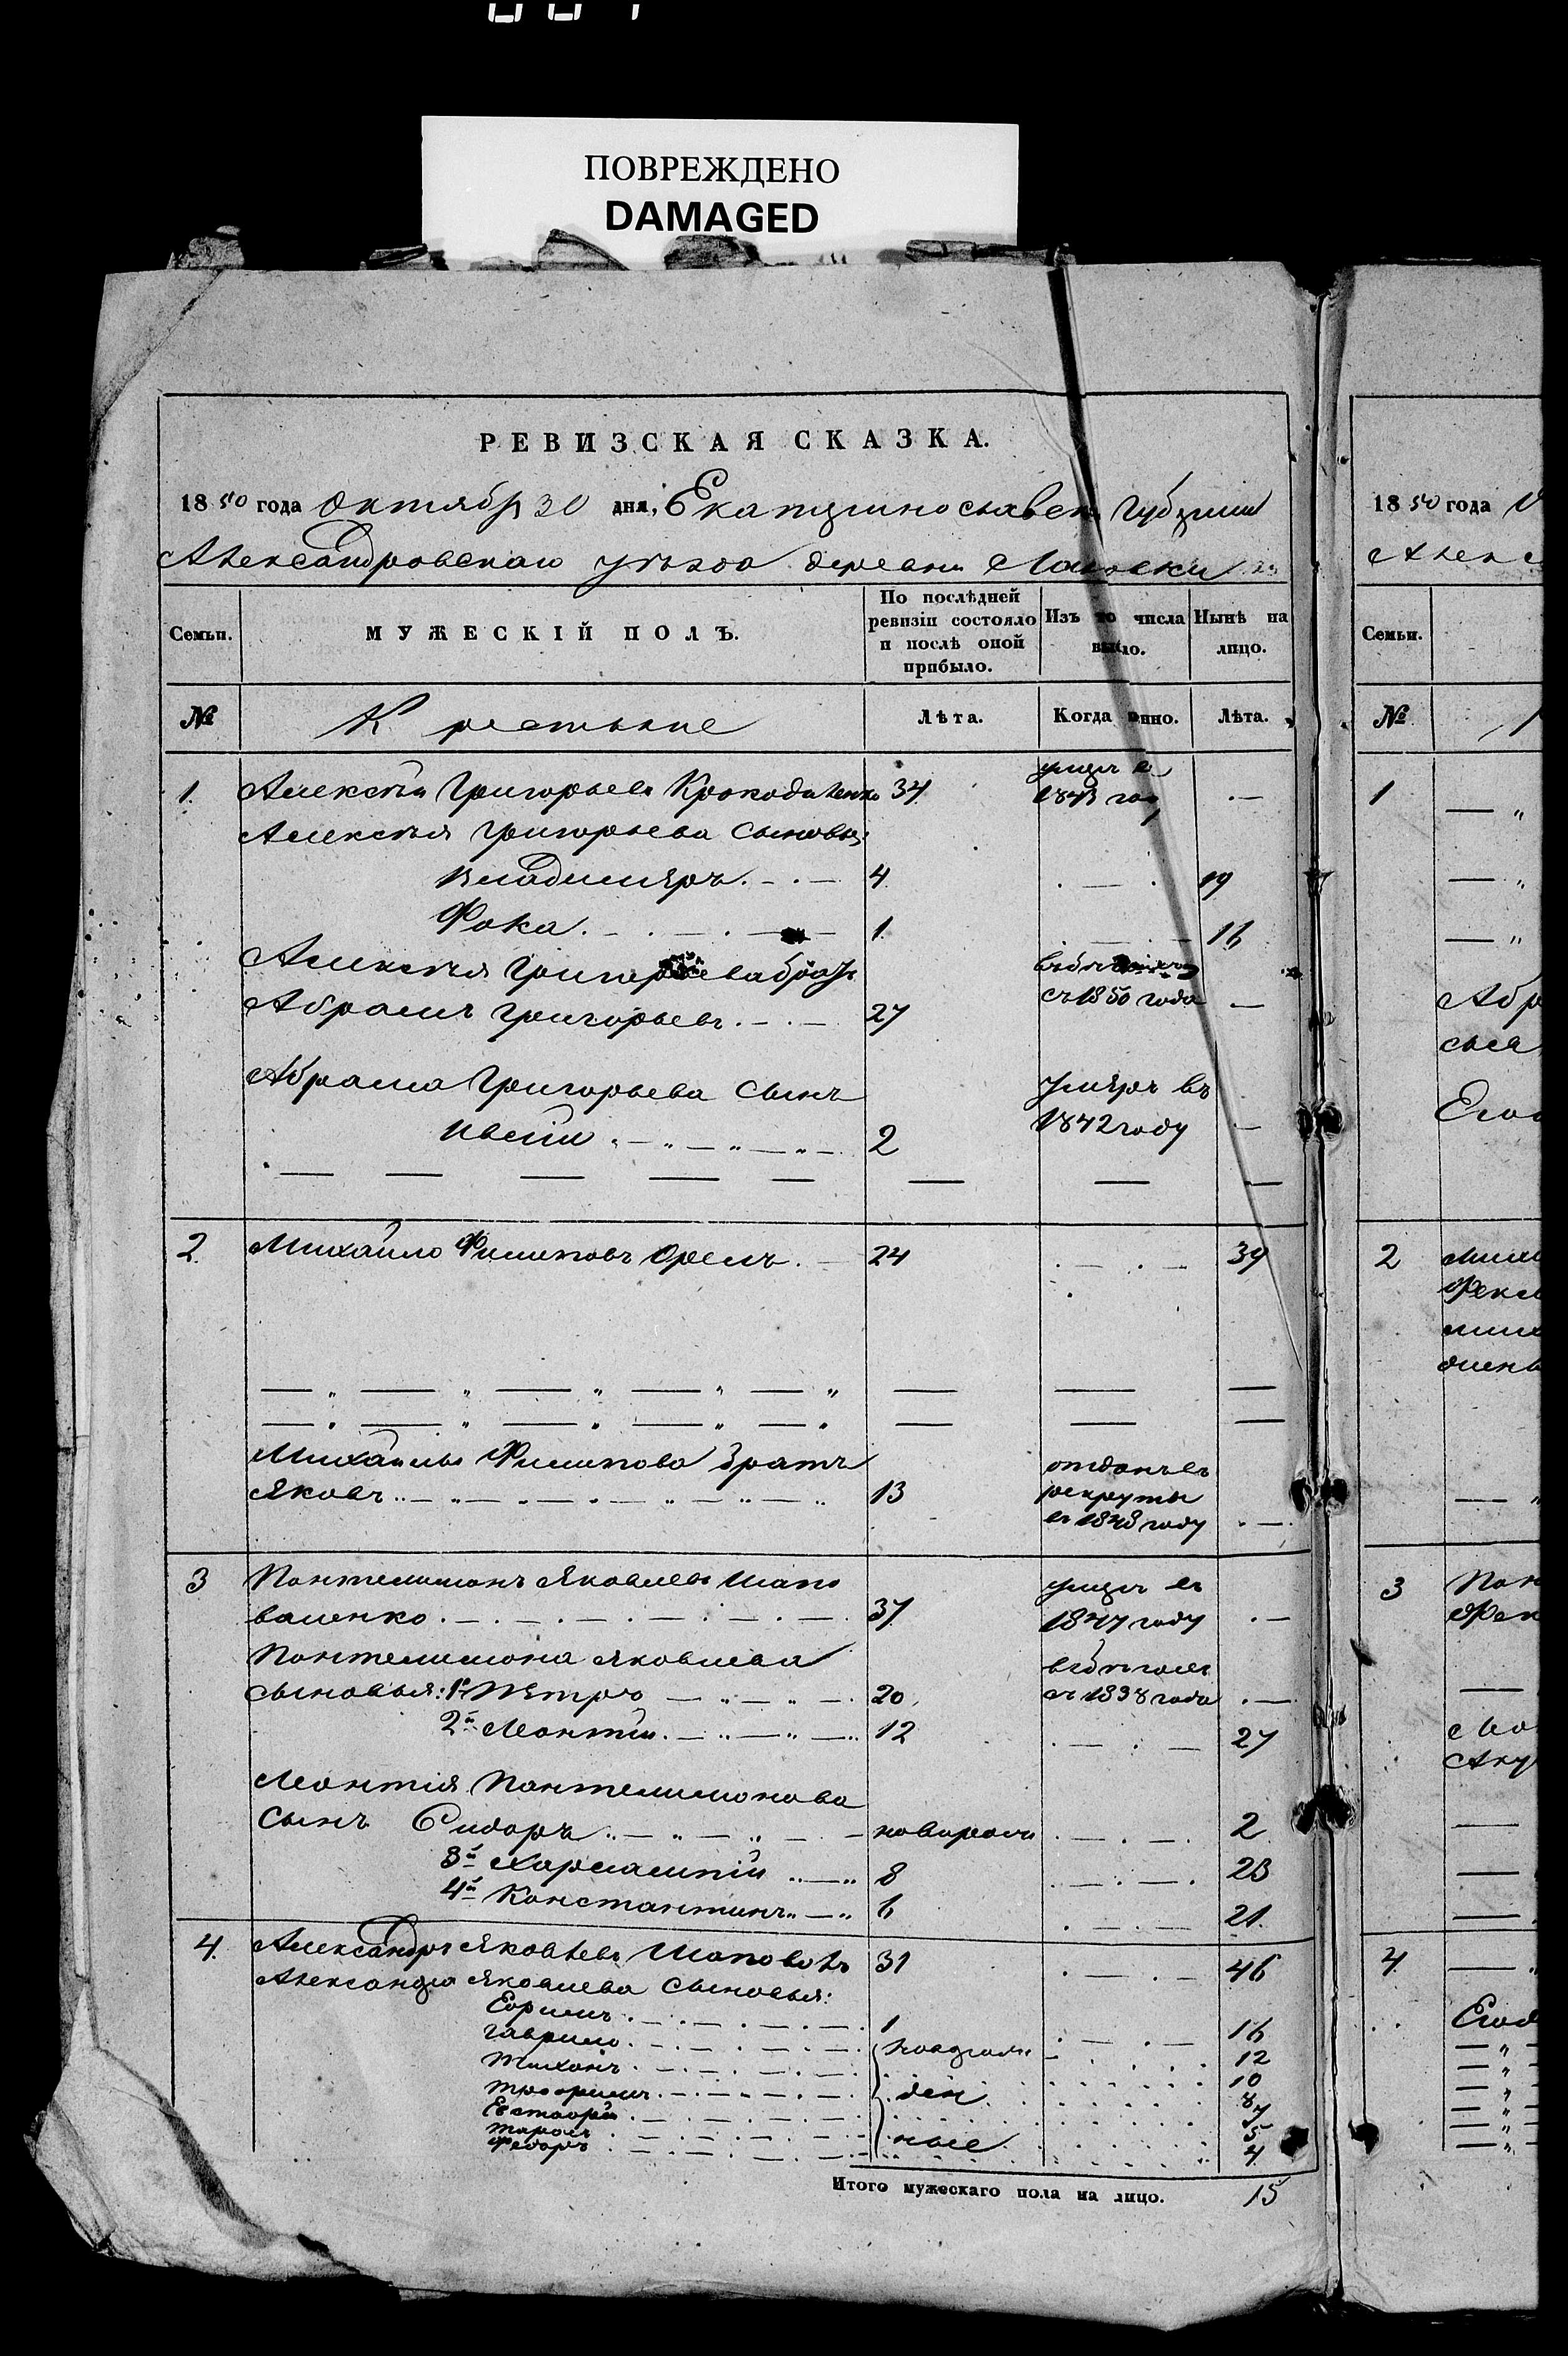 ПОВРЕЖДЕНО
DAMAGED
РЕВИЗСКАЯ СКАЗКА.
1850 года Октября 30 дня, Екатеринославской Губернии
Александровскаго уѣзда деревни
Семьи. МУЖЕСКІЙ ПОЛЪ. По послѣдней ревизіи состояло и послѣ оной прибыло. Изъ то числа выбыло. Нынѣ на лицо.
№ Крестьяне Лѣта. Когда имнно. Лѣта.
1. Алексѣй Григорьевъ 34 умеръ в 1843 году —
Алексѣя Григорьева сыновья
Владимеръ. 4 19
Фока 1. 16
Алексѣя Григорьева братъ
Абрамъ Григорьевъ. 27 съ 1850 года —
Абрама Григорьева сынъ умеръ въ
2 1842 году —
2. Михайло Филиповъ Орелъ. 24 39
Михайлы Филипова братъ отданъ въ
Яковъ 13 рекруты
въ 1848 году —
3 Пантелимонъ Яковлевъ Шапо умеръ въ
валенко. 37 1847 году —
Пантелимона Яковлева въ бѣгахъ
сыновья: 1й Петро 20 съ 1838 года —
2й Леонтій 12 27
Леонтія Пантелимонова
сынъ Сидоръ новорожд 2
3й Харлампій 8 23
4й Константинъ 6 21
4. Александръ Яковлевъ Шаповалъ 31 46
Александра Яковлева сыновья:
Ефримъ 1 16
Гаврило новорож 12
Тихонъ 10
Трофимъ ден 8
Евстафій 7
Тарасъ ные 5
Федоръ 4
Итого мужескаго пола на лицо. 15
1850 года
Семьи.
№
1
2
3
4